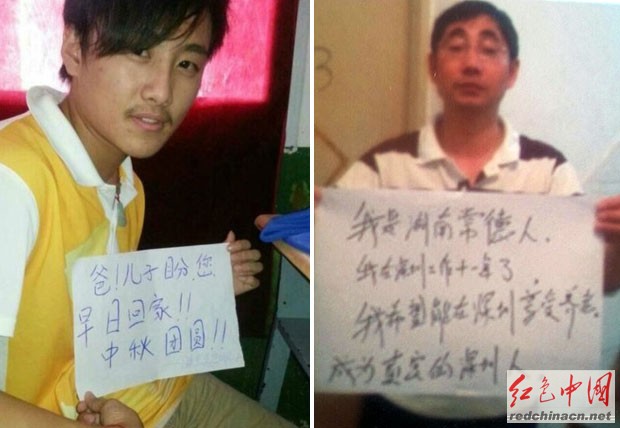 爸!儿子盼您
早日回家!!
中秋团圆!!
我是湖南常德人.
我在深圳工作十一年了
我希望能在深圳享受养老.
成为真实的深圳人
红色中国
redchinacn.net